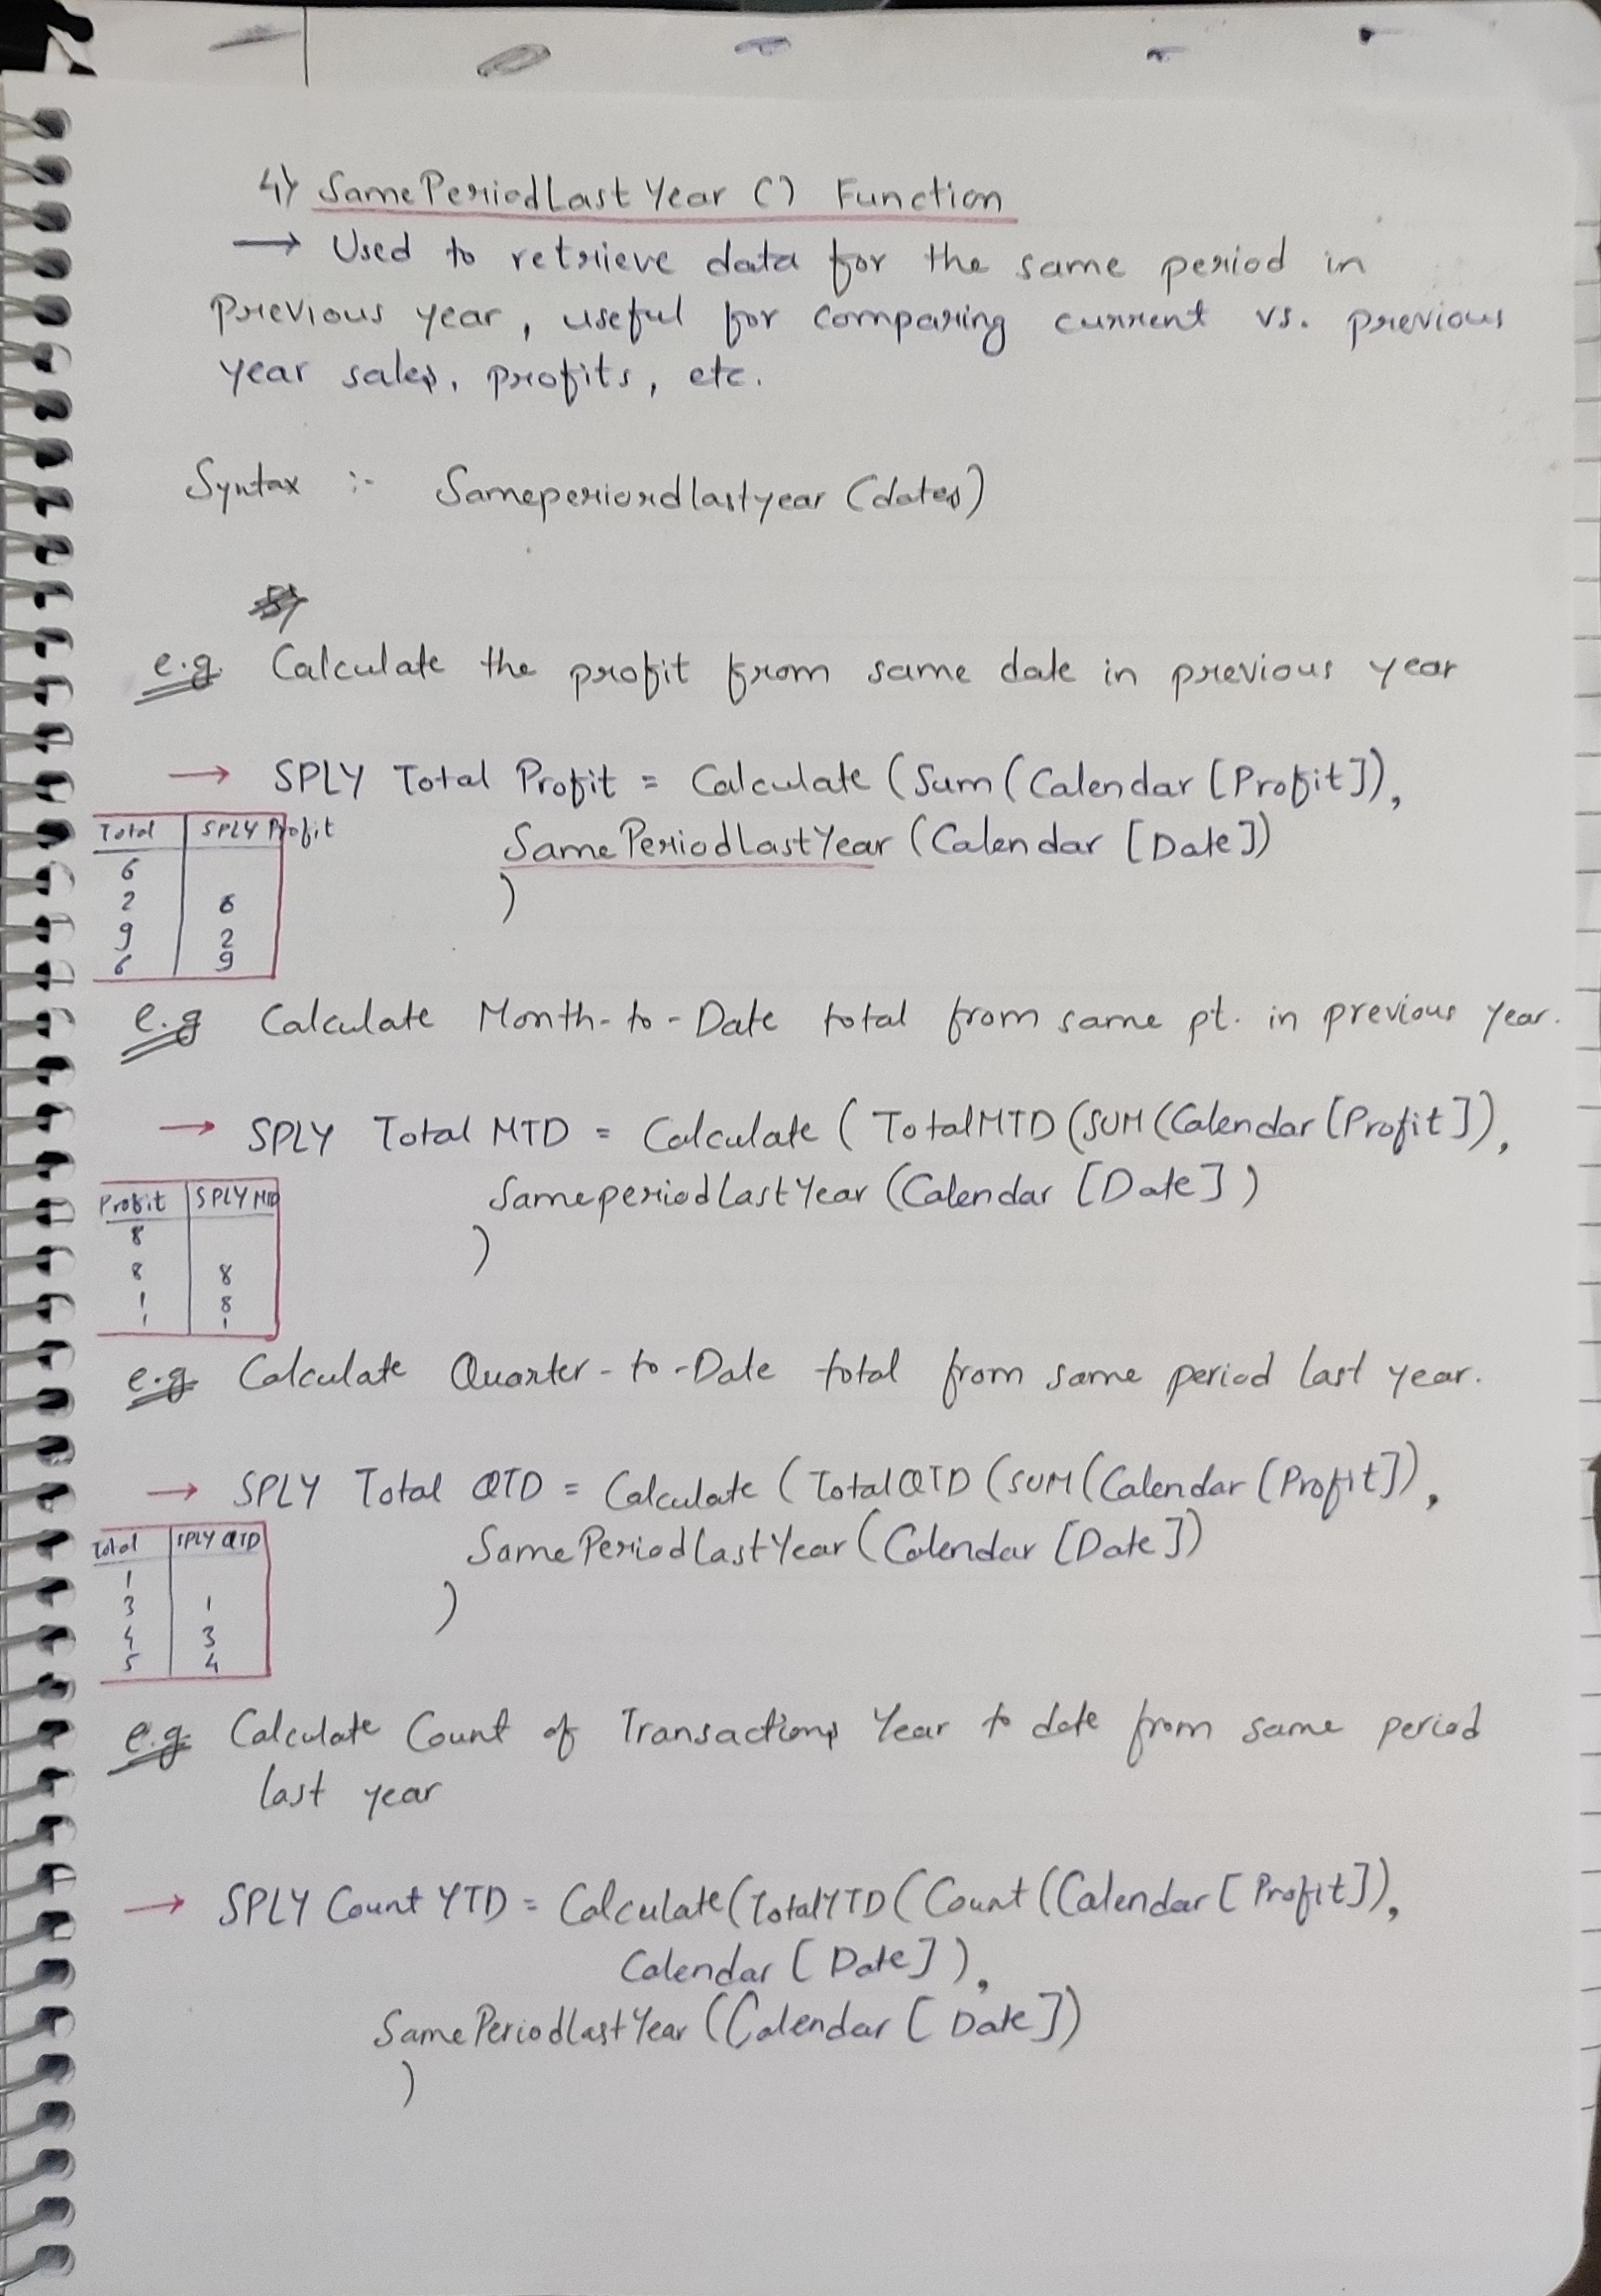 4) SamePeriodLastYear () Function
→ Used to retrieve data for the same period in
previous year, useful for comparing current vs. previous
year sales, profits, etc.
Syntax :- Sameperiordlastyear (dates)
e.g. Calculate the profit from same date in previous year
→ SPLY Total Profit = Calculate (Sum (Calendar [Profit]),
SamePeriodLastYear (Calendar [Date])
)
Total SPLY Profit
6
2 6
9 2
6 9
e.g Calculate Month-to-Date total from same pt. in previous year.
→ SPLY Total MTD = Calculate (TotalMTD (SUM (Calendar [Profit]),
SameperiodLastYear (Calendar [Date])
)
Profit SPLY MTD
8
8 8
1 8
1 1
e.g. Calculate Quarter-to-Date total from same period last year.
→ SPLY Total QTD = Calculate (TotalQTD (SUM (Calendar [Profit]),
SamePeriodLastYear (Calendar [Date])
)
Total SPLY QTD
1
3 1
4 3
5 4
e.g. Calculate Count of Transactions Year to date from same period
last year
→ SPLY Count YTD = Calculate (TotalYTD (Count (Calendar [Profit]),
Calendar [Date]),
SamePeriodlastYear (Calendar [Date])
)